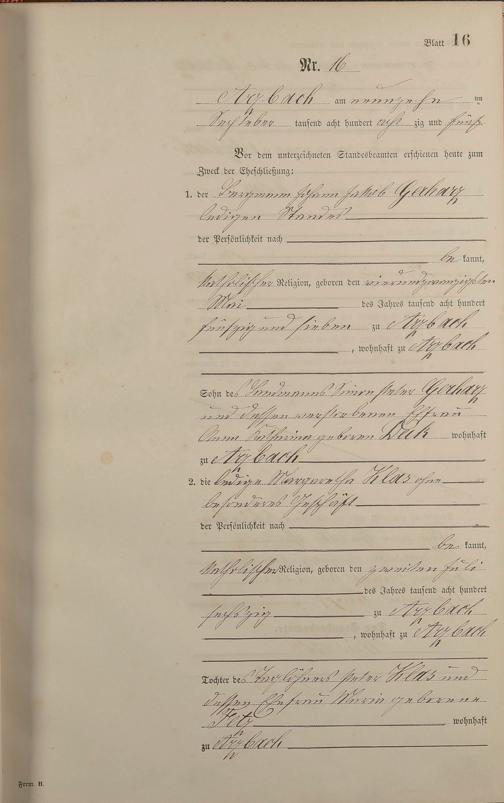 Blatt 16
Nr. 16
Arzbach am neunzehn ten
October tausend acht hundert acht zig und fünf
Vor dem unterzeichneten Standesbeamten erschienen heute zum
Zweck der Eheschließung:
1. der Bergmann Johann Jakob Gerharz
ledigen Standes
der Persönlichkeit nach
be kannt,
katholischer Religion, geboren den vierundzwanzigsten
Mai des Jahres tausend acht hundert
fünfzig und sieben zu Arzbach
, wohnhaft zu Arzbach
Sohn des Landmanns Simon Peter Gerharz
und dessen verstorbenen Ehefrau
Anna Katharina geborene wohnhaft
zu Arzbach
2. die ledige Margaretha Klas ohne
besonderes Geschäft
der Persönlichkeit nach
be kannt,
katholischer Religion, geboren den zweiten Juli
des Jahres tausend acht hundert
sechszig zu Arzbach
, wohnhaft zu Arzbach
Tochter des Taglöhners Peter Klas und
dessen Ehefrau Maria geborene
wohnhaft
zu Arzbach
Form. B.